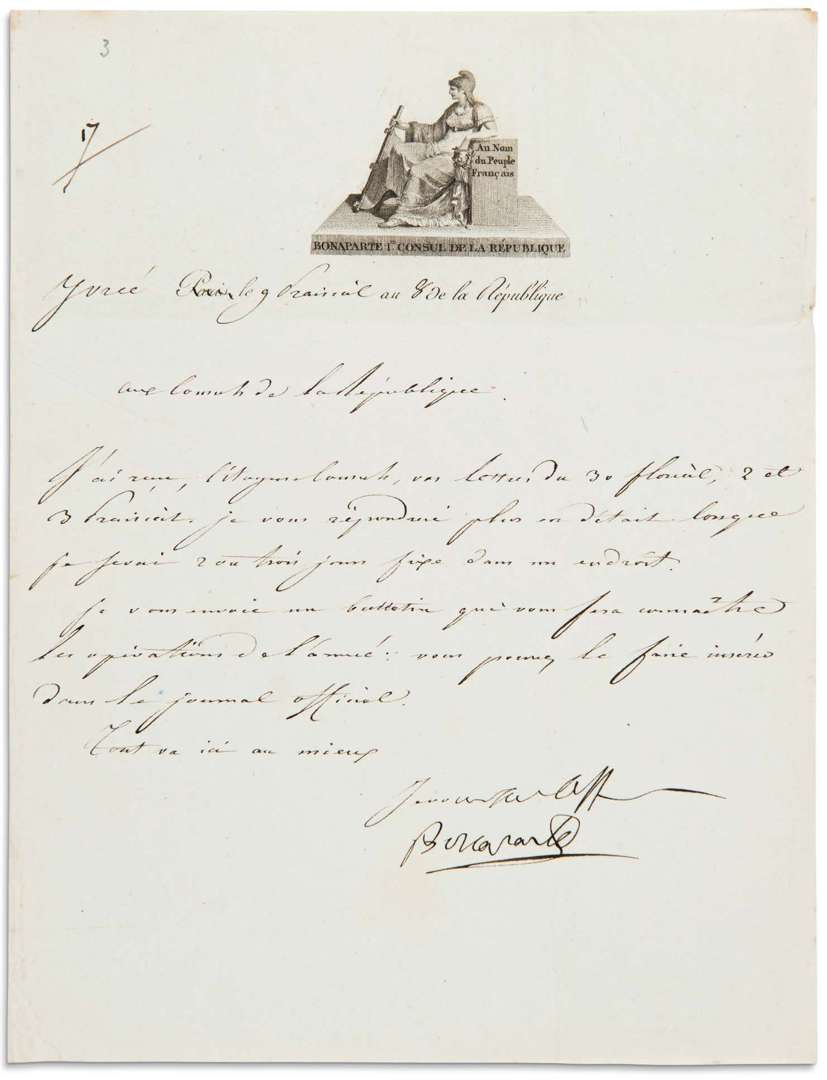 3
17
Au Nom
du Peuple
Français
BONAPARTE 1er CONSUL DE LA RÉPUBLIQUE
Yvrée Paris, le 9 Prairial an 8 de la République
aux Consuls de la République.
J'ai reçu, Citoyens Consuls, vos lettres du 30 floréal, 2 et
3 Prairial. je vous répondrai plus en détail lorsque
je serai 2 ou trois jours fixe dans un endroit.
Je vous envoie un bulletin qui vous fera connaître
les opérations de l'armée: vous pouvez le faire insérer
dans le journal officiel.
Tout va ici au mieux
Bonaparte